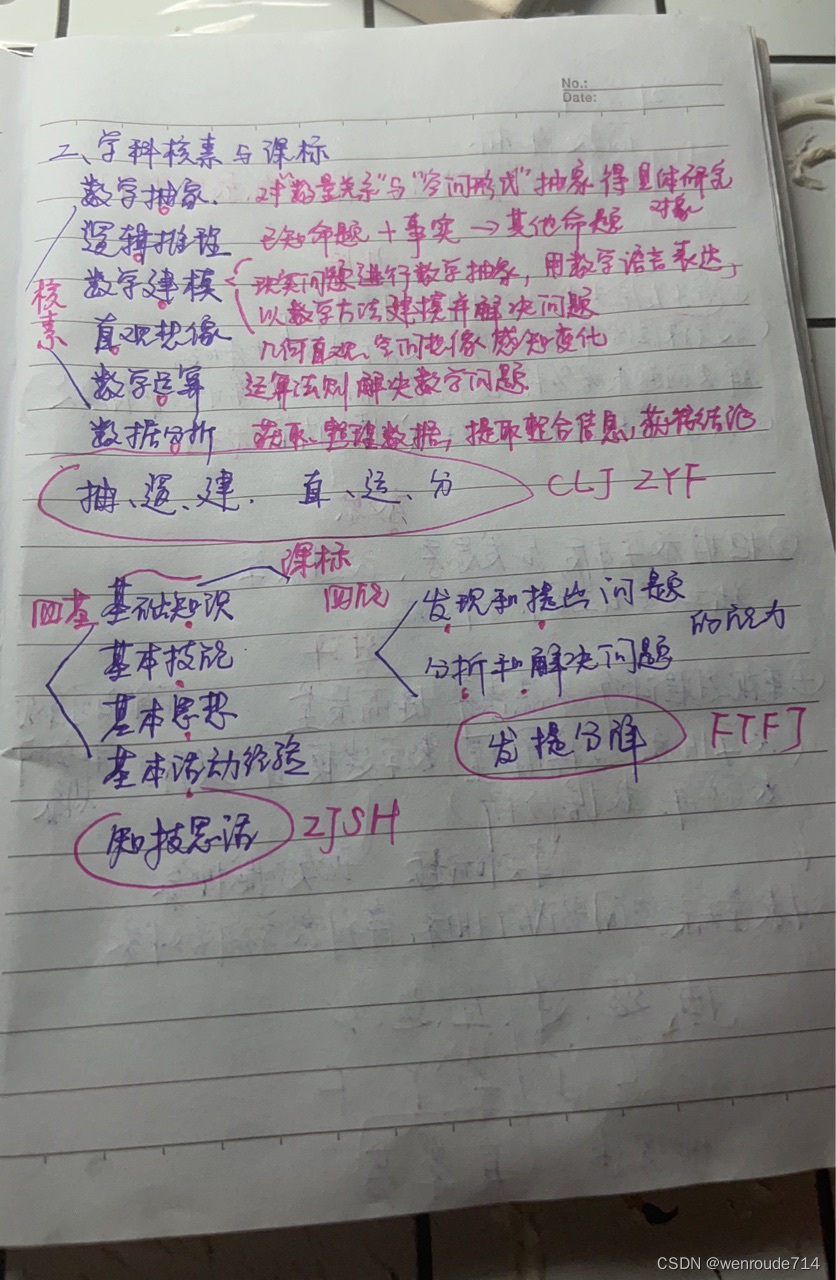 No.:
Date:
二、学科核素与课标
数学抽象. 对"数量关系"与"空间形式"抽象得具体研究
对象
逻辑推理 已知命题 + 事实 → 其他命题
核素
数学建模 现实问题进行数学抽象,用数学语言表达,
以数学方法建模并解决问题
直观想像 几何直观、空间想像感知变化
数学运算 运算法则解决数学问题.
数据分析 获取、整理数据,提取整合信息,获得结论
抽、逻、建. 直、运、分 CLJ ZYF
课标
四基 基础知识 四能 发现和提出问题
的能力
基本技能 分析和解决问题
基本思想
发提分解 FTFJ
基本活动经验
知技思活 ZJSH
CSDN @wenroude714